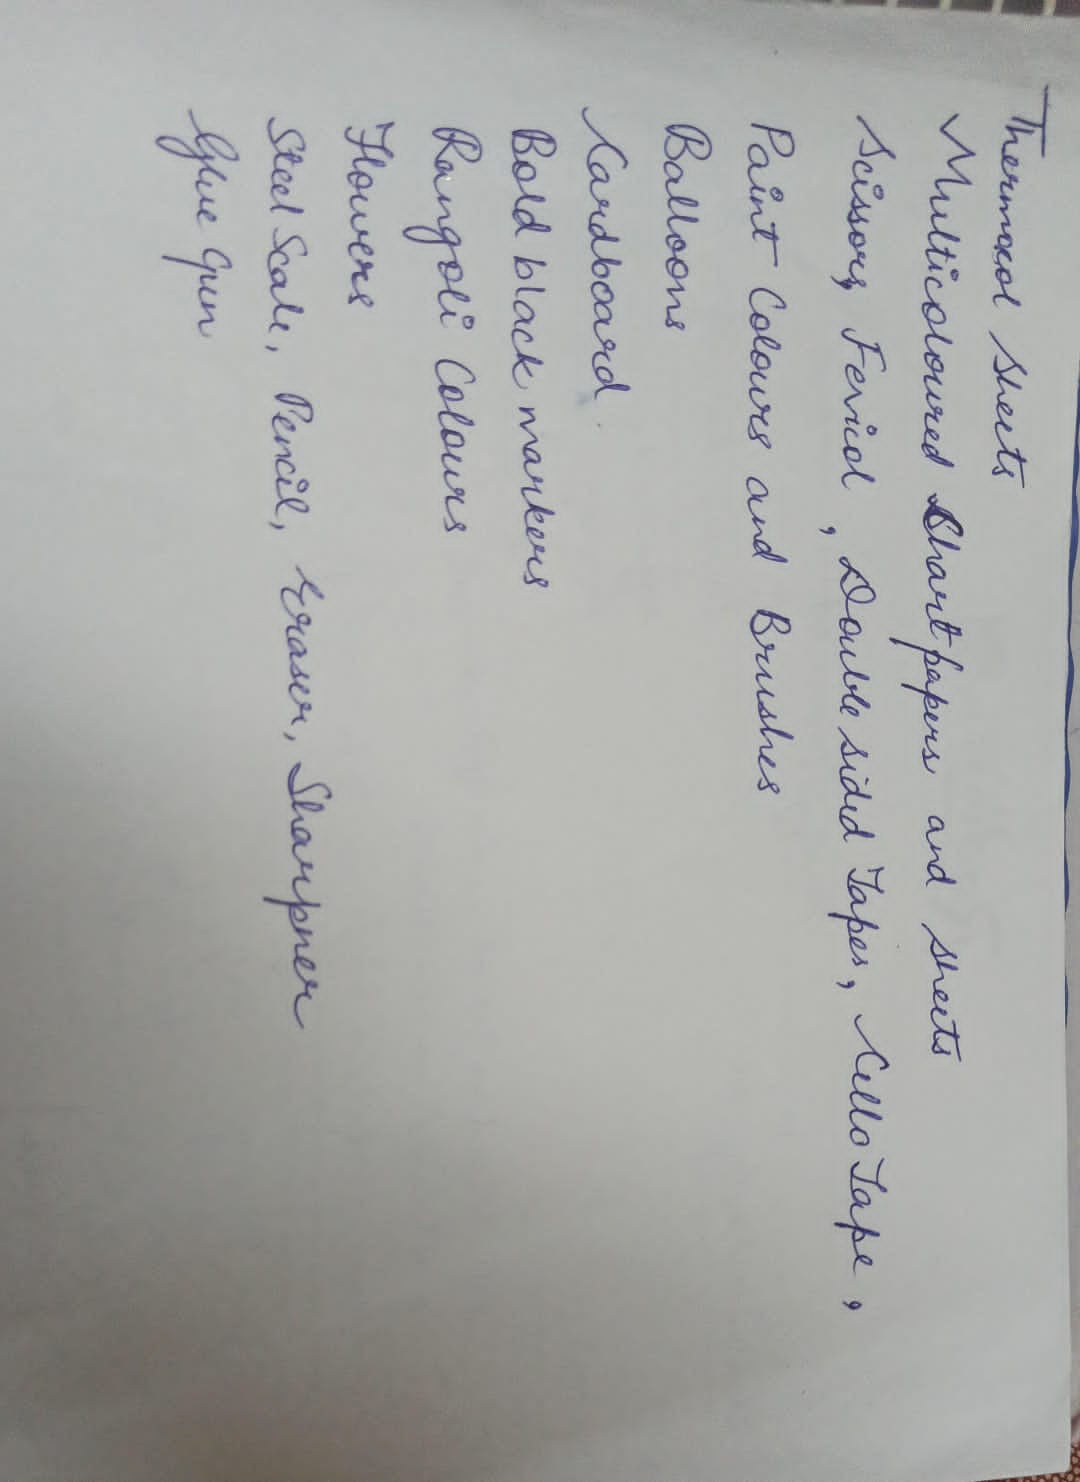 Thermocol Sheets
Multicoloured Chart papers and Sheets
Scissors, Fevicol, Double sided Tapes, Cello Tape,
Paint Colours and Brushes
Balloons
Cardboard.
Bold black markers
Rangoli Colours
Flowers
Steel Scale, Pencil, Eraser, Sharpner
Glue Gun